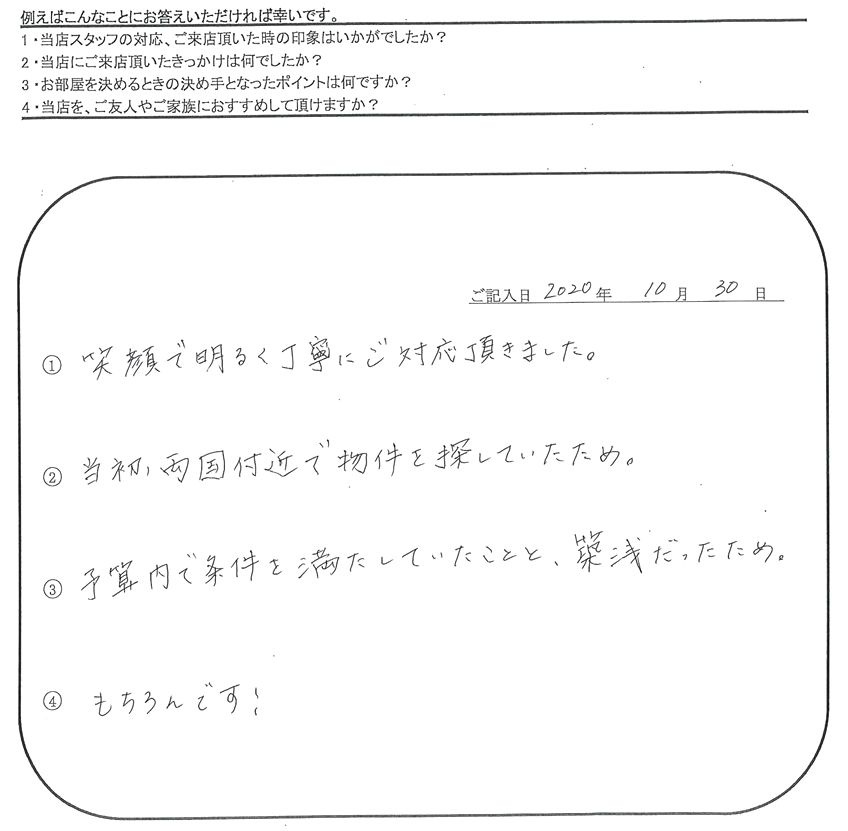 例えばこんなことにお答えいただければ幸いです。
1・当店スタッフの対応、ご来店頂いた時の印象はいかがでしたか？
2・当店にご来店頂いたきっかけは何でしたか？
3・お部屋を決めるときの決め手となったポイントは何ですか？
4・当店を、ご友人やご家族におすすめして頂けますか？
ご記入日 2020 年 10 月 30 日
① 笑顔で明るく丁寧にご対応頂きました。
② 当初、両国付近で物件を探していたため。
③ 予算内で条件を満たしていたことと、築浅だったため。
④ もちろんです!